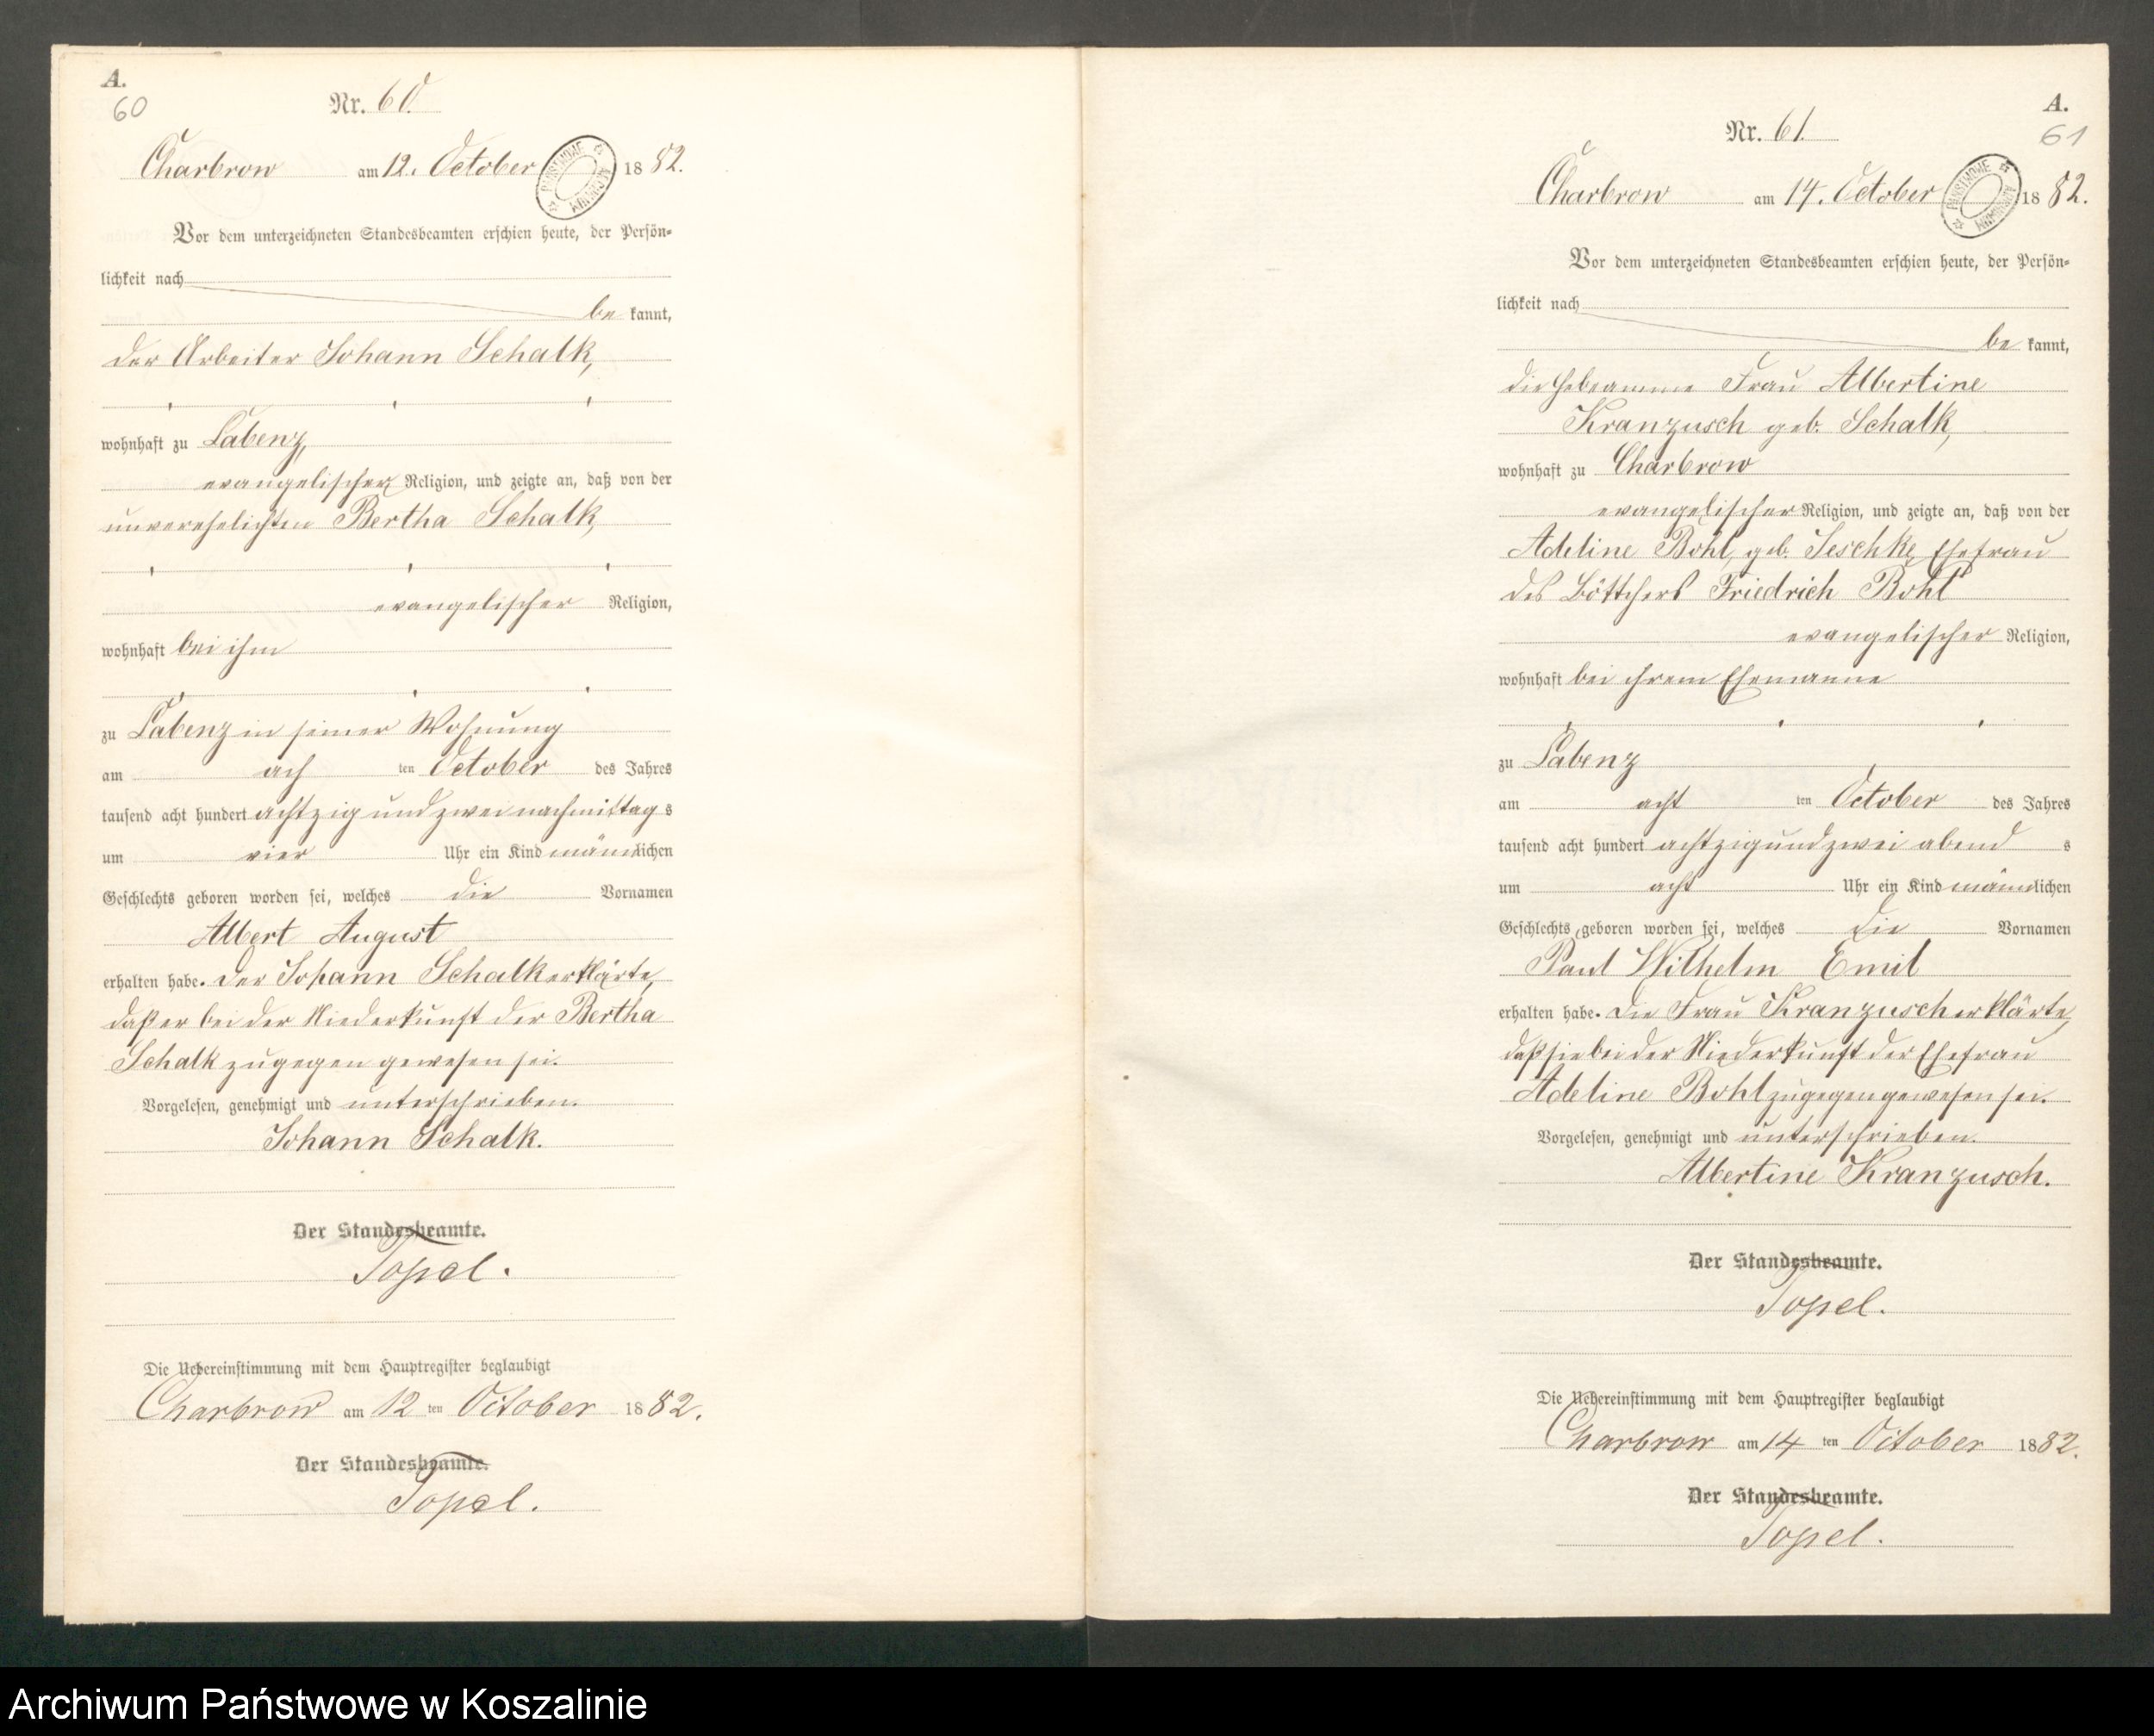 A.
60
Nr. 60.
Charbrow am 12. October 1882.
PAŃSTWOWE ARCHIWUM
Vor dem unterzeichneten Standesbeamten erschien heute, der Persön-
lichkeit nach
be kannt,
der Arbeiter Johann Schalk,
wohnhaft zu Labenz,
evangelischer Religion, und zeigte an, daß von der
unverehelichten Bertha Schalk,
evangelischer Religion,
wohnhaft bei ihm
zu Labenz in seiner Wohnung
am ach ten October des Jahres
tausend acht hundert achtzig und zwei nachmittag s
um vier Uhr ein Kind männlichen
Geschlechts geboren worden sei, welches die Vornamen
Albert August
erhalten habe. Der Johann Schalk erklärte,
daß er bei der Niederkunft der Bertha
Schalk zugegen gewesen sei.
Vorgelesen, genehmigt und unterschrieben.
Johann Schalk.
Der Standesbeamte.
Topel.
Die Uebereinstimmung mit dem Hauptregister beglaubigt
Charbrow am 12 ten October 1882.
Der Standesbeamte.
Topel.
A.
61
Nr. 61.
Charbrow am 14. October 1882.
PAŃSTWOWE ARCHIWUM
Vor dem unterzeichneten Standesbeamten erschien heute, der Persön-
lichkeit nach
be kannt,
die Hebeamme Frau Albertine
Kranzusch geb. Schalk,
wohnhaft zu Charbrow
evangelischer Religion, und zeigte an, daß von der
Adeline Bohl, geb. Jeschke, Ehefrau
des Böttchers Friedrich Bohl
evangelischer Religion,
wohnhaft bei ihrem Ehemanne
zu Labenz
am acht ten October des Jahres
tausend acht hundert achtzig und zwei abend s
um acht Uhr ein Kind männlichen
Geschlechts geboren worden sei, welches die Vornamen
Paul Wilhelm Emil
erhalten habe. Die Frau Kranzusch erklärte,
daß sie bei der Niederkunft der Ehefrau
Adeline Bohl zugegen gewesen sei.
Vorgelesen, genehmigt und unterschrieben.
Albertine Kranzusch.
Der Standesbeamte.
Topel.
Die Uebereinstimmung mit dem Hauptregister beglaubigt
Charbrow am 14 ten October 1882.
Der Standesbeamte.
Topel.
Archiwum Państwowe w Koszalinie